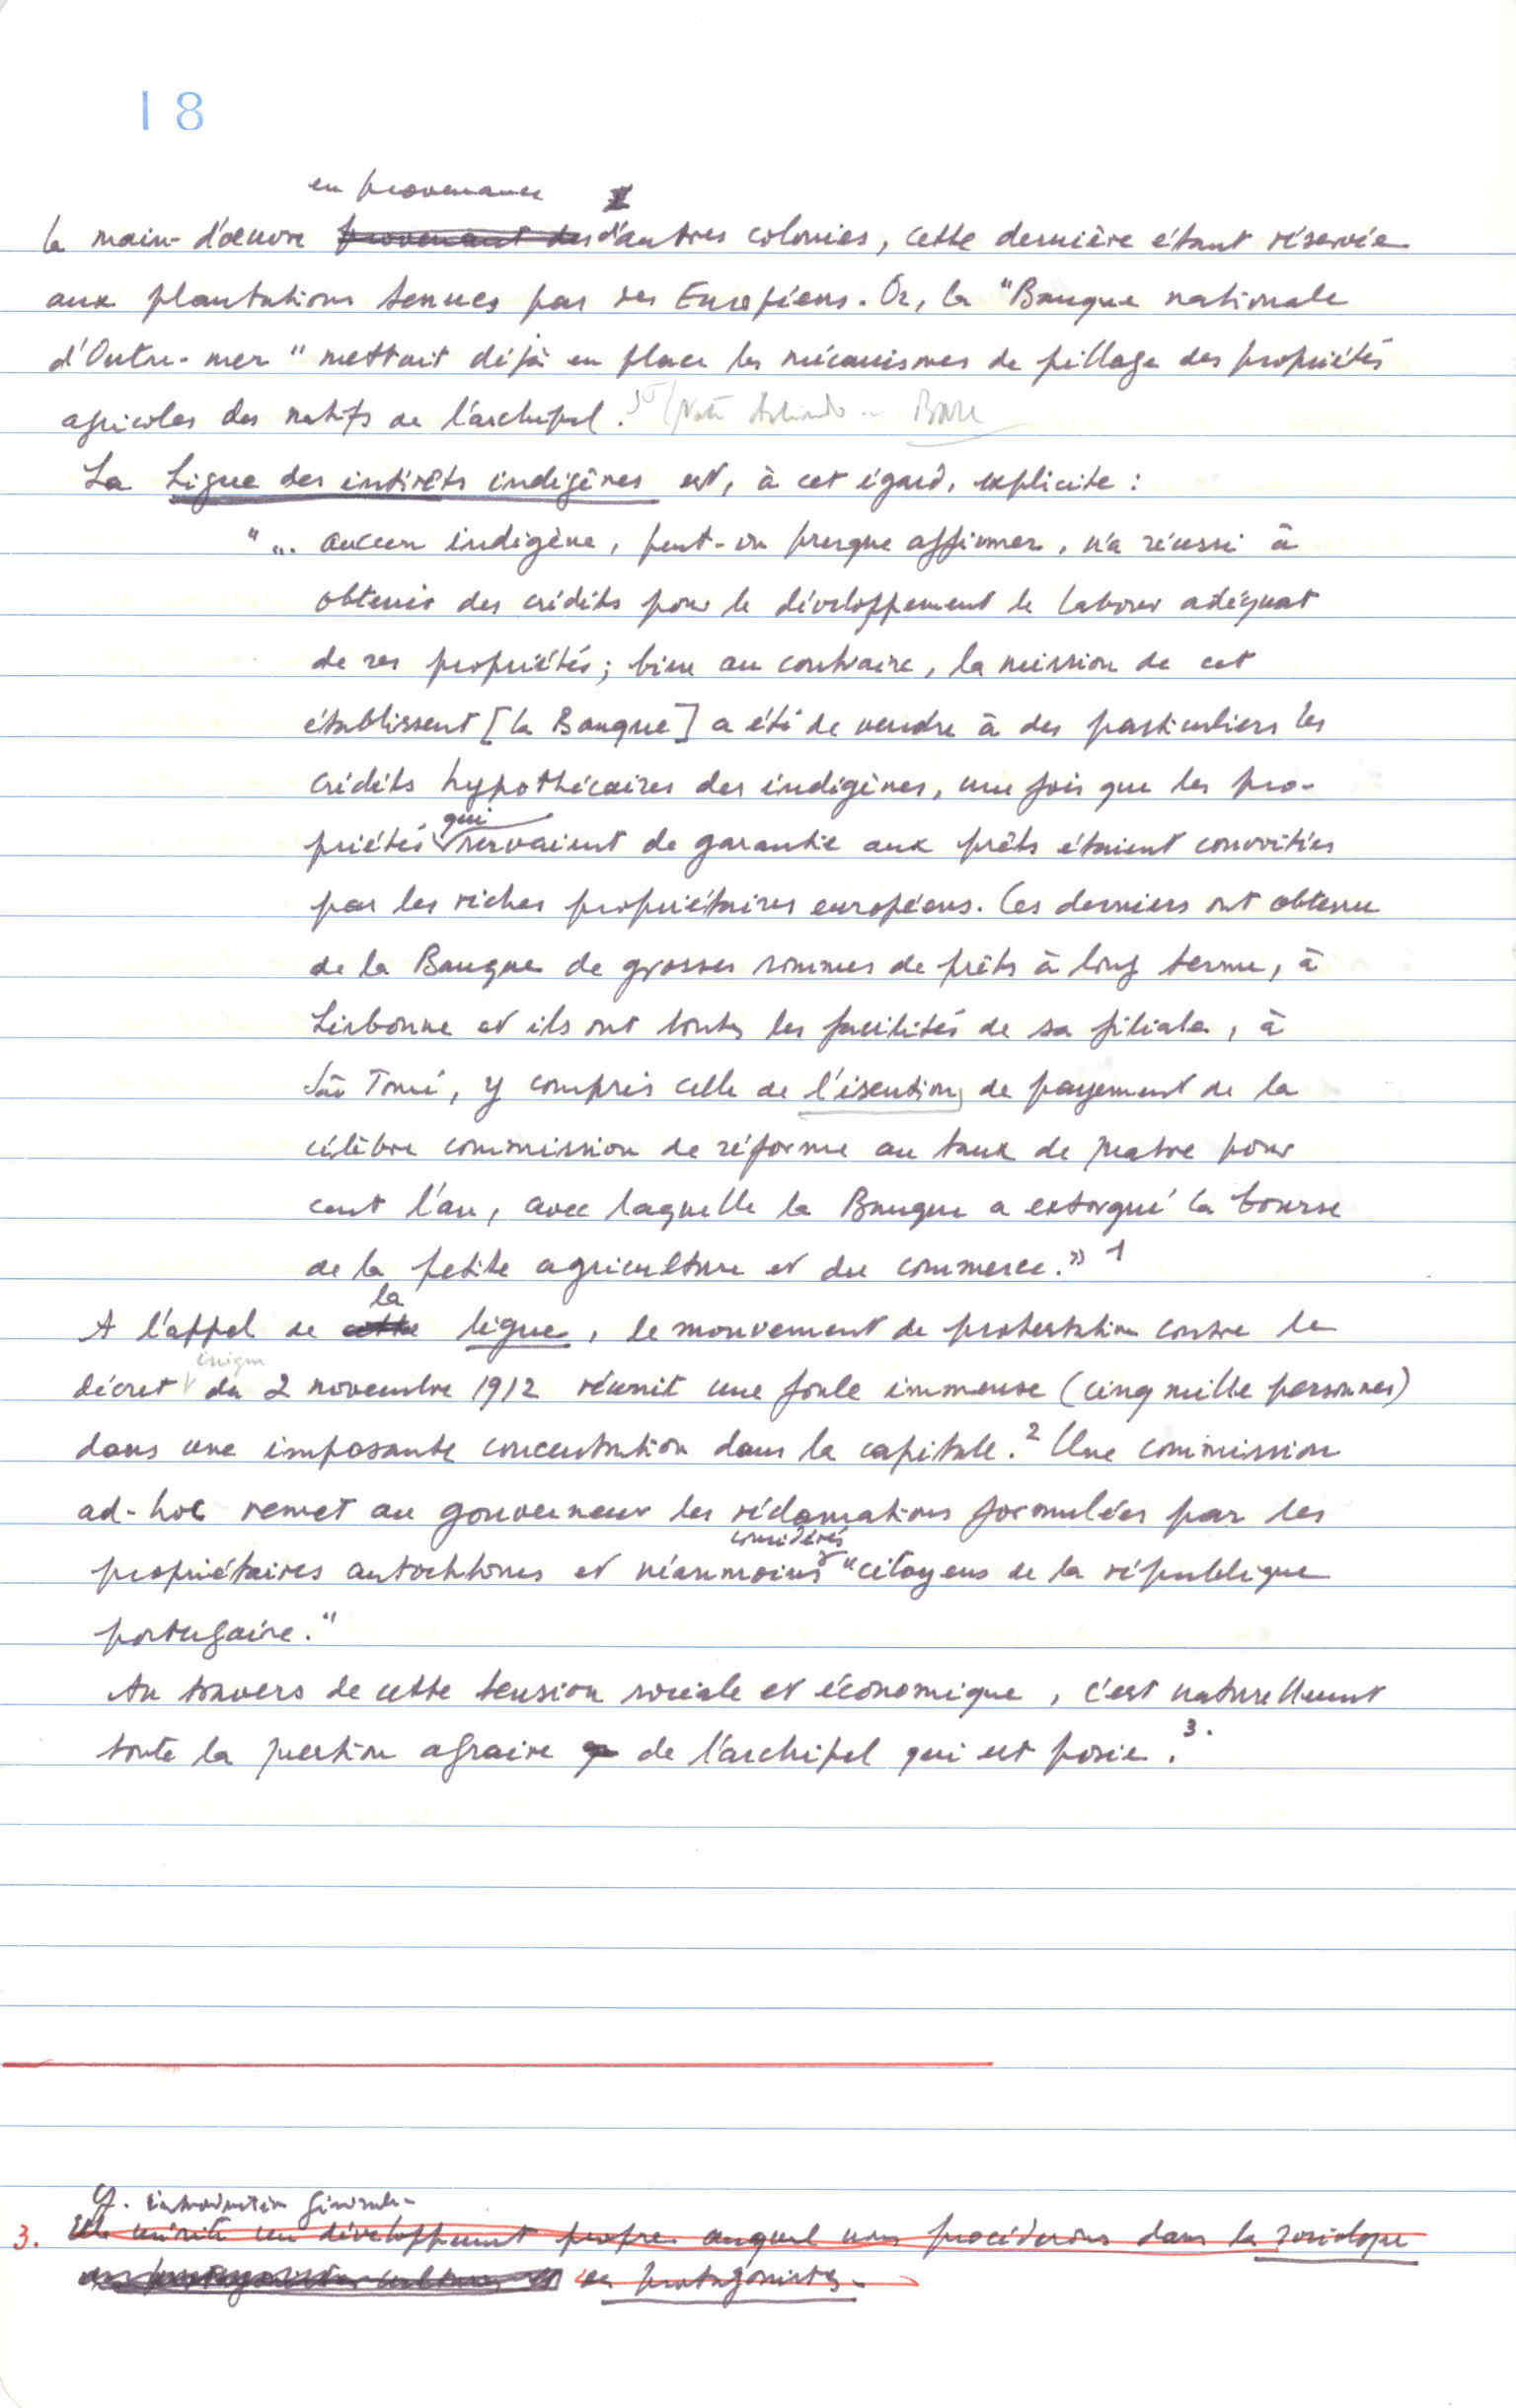 18
en provenance
la main-d'œuvre provenant des d'autres colonies, cette dernière étant réservée
aux plantations tenues par des Européens. Or, la "Banque nationale
d'Outre-mer" mettait déjà en place les mécanismes de pillage des propriétés
agricoles des natifs de l'archipel.
La Ligue des intérêts indigènes est, à cet égard, explicite :
"... aucun indigène, peut-on presque affirmer, n'a réussi à
obtenir des crédits pour le développement le labour adéquat
de ses propriétés ; bien au contraire, la mission de cet
établissent [la Banque] a été de vendre à des particuliers les
crédits hypothécaires des indigènes, une fois que les pro-
qui
priétés servaient de garantie aux prêts étaient convoitées
par les riches propriétaires européens. Ces derniers ont obtenu
de la Banque de grosses sommes de prêts à long terme, à
Lisbonne et ils ont toutes les facilités de sa filiale, à
São Tomé, y compris celle de l'isention de payement de la
célèbre commission de réforme au taux de quatre pour
cent l'an, avec laquelle la Banque a extorqué la bourse
de la petite agriculture et du commerce." 1
la
A l'appel de cette ligue, le mouvement de protestation contre le
inique
décret du 2 novembre 1912 réunit une foule immense (cinq mille personnes)
dans une imposante concentration dans la capitale.2 Une commission
ad-hoc remet au gouverneur les réclamations formulées par les
considérés
propriétaires autochtones et néanmoins "citoyens de la république
portugaise."
Au travers de cette tension sociale et économique, c'est naturellement
toute la question agraire de l'archipel qui est posée. 3.
Cf. introduction générale
3. Elle mérite un développement propre auquel nous procéderons dans la sociologie
des protagonistes.